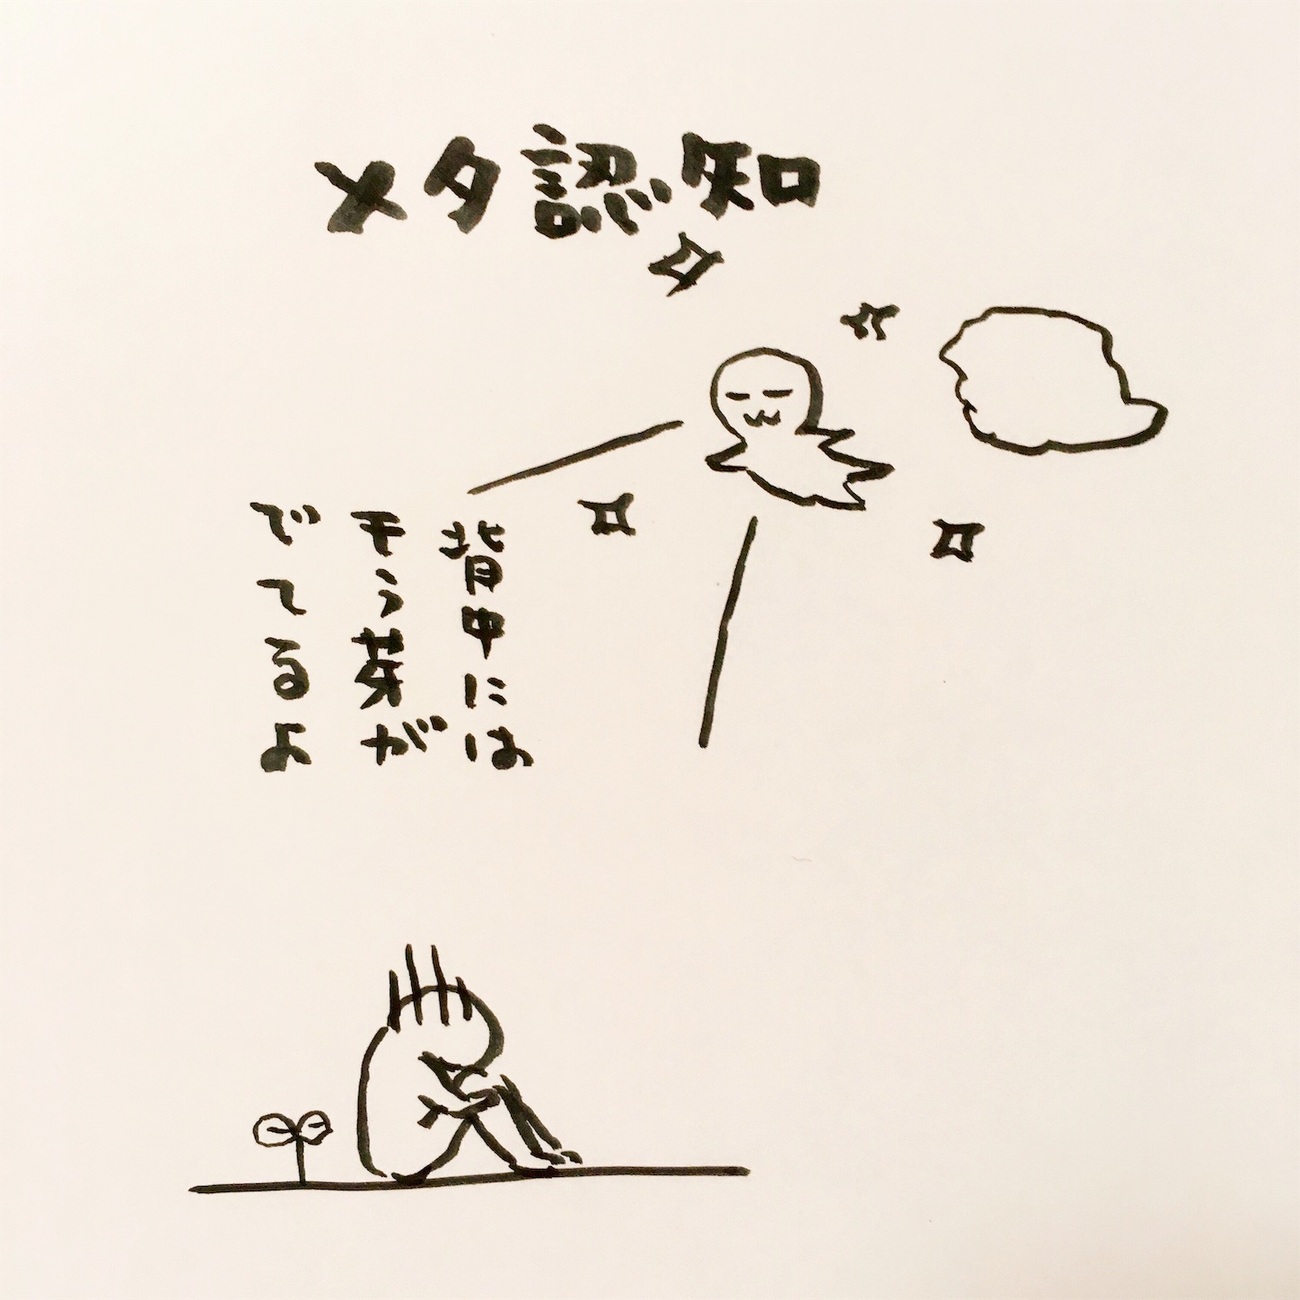 メタ認知
背中には
もう芽が
でてるよ